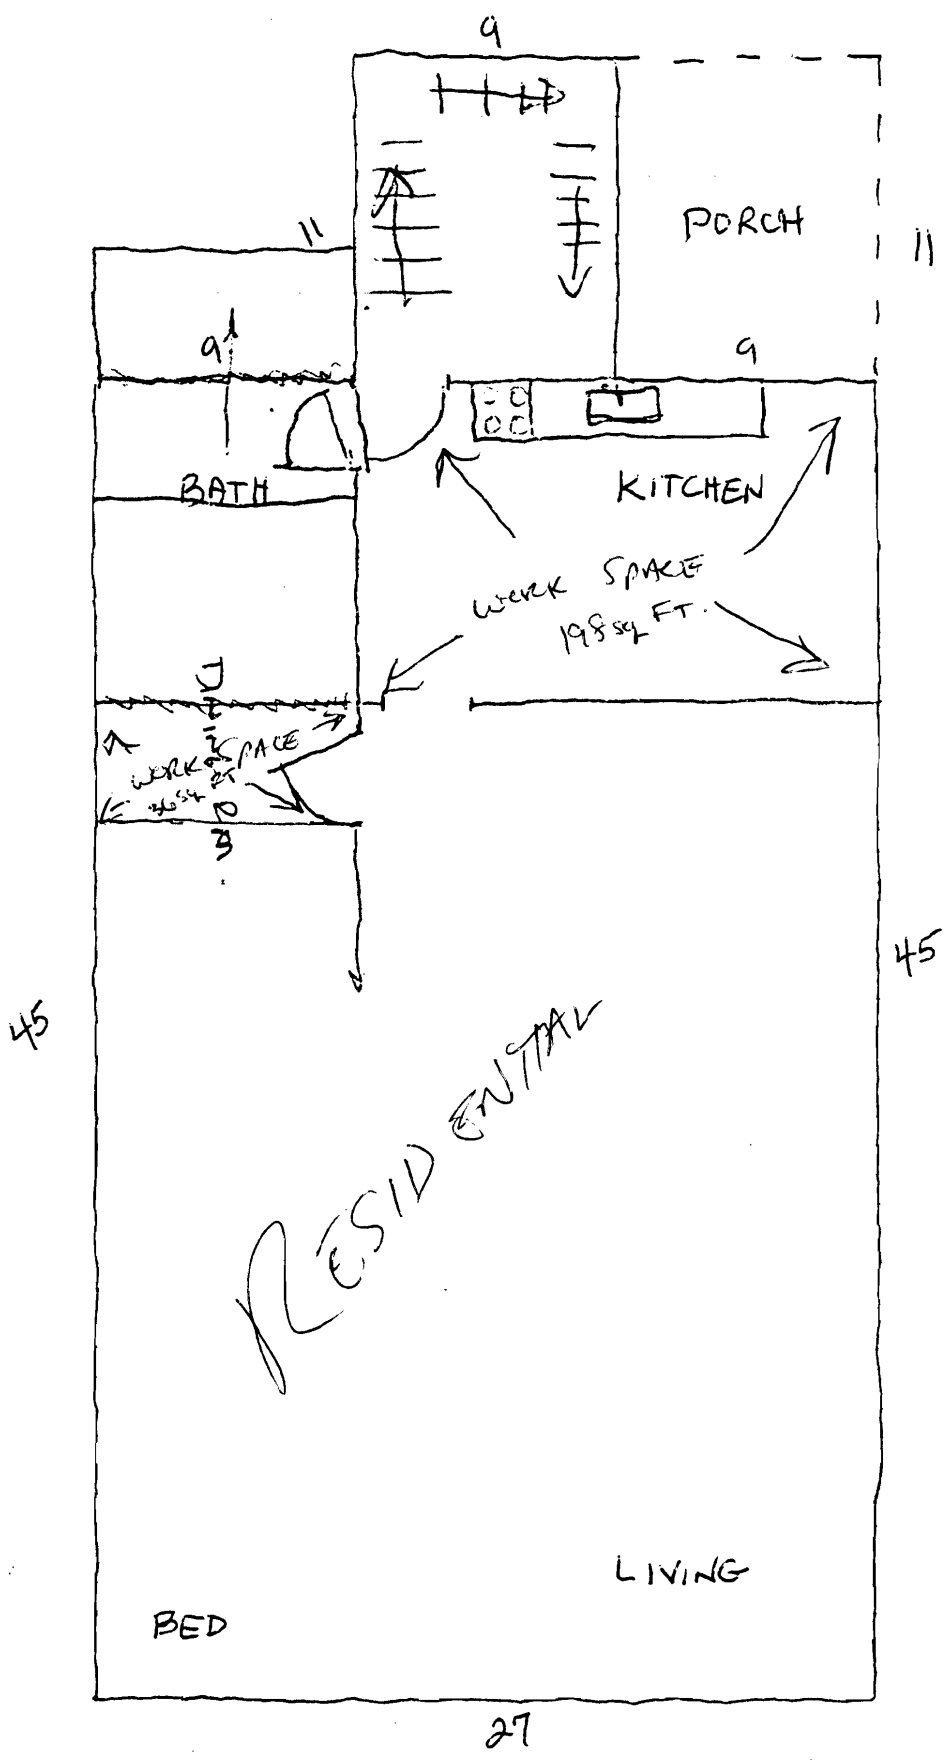 9
PORCH
11
11
9
9
BATH
KITCHEN
WORK SPACE
198 sq FT.
WORK SPACE
36 sq FT
45
45
RESIDENTIAL
LIVING
BED
27